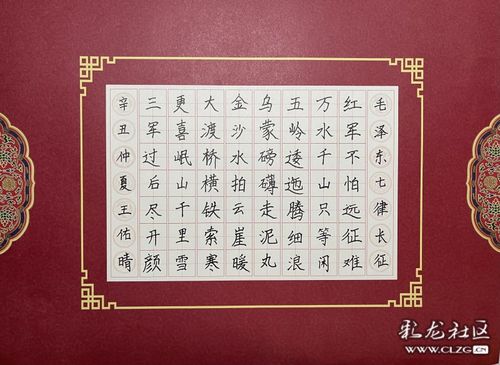 毛泽东七律长征
红军不怕远征难
万水千山只等闲
五岭逶迤腾细浪
乌蒙磅礴走泥丸
金沙水拍云崖暖
大渡桥横铁索寒
更喜岷山千里雪
三军过后尽开颜
辛丑仲夏王佑晴
彩龙社区
WWW.CLZG.CN